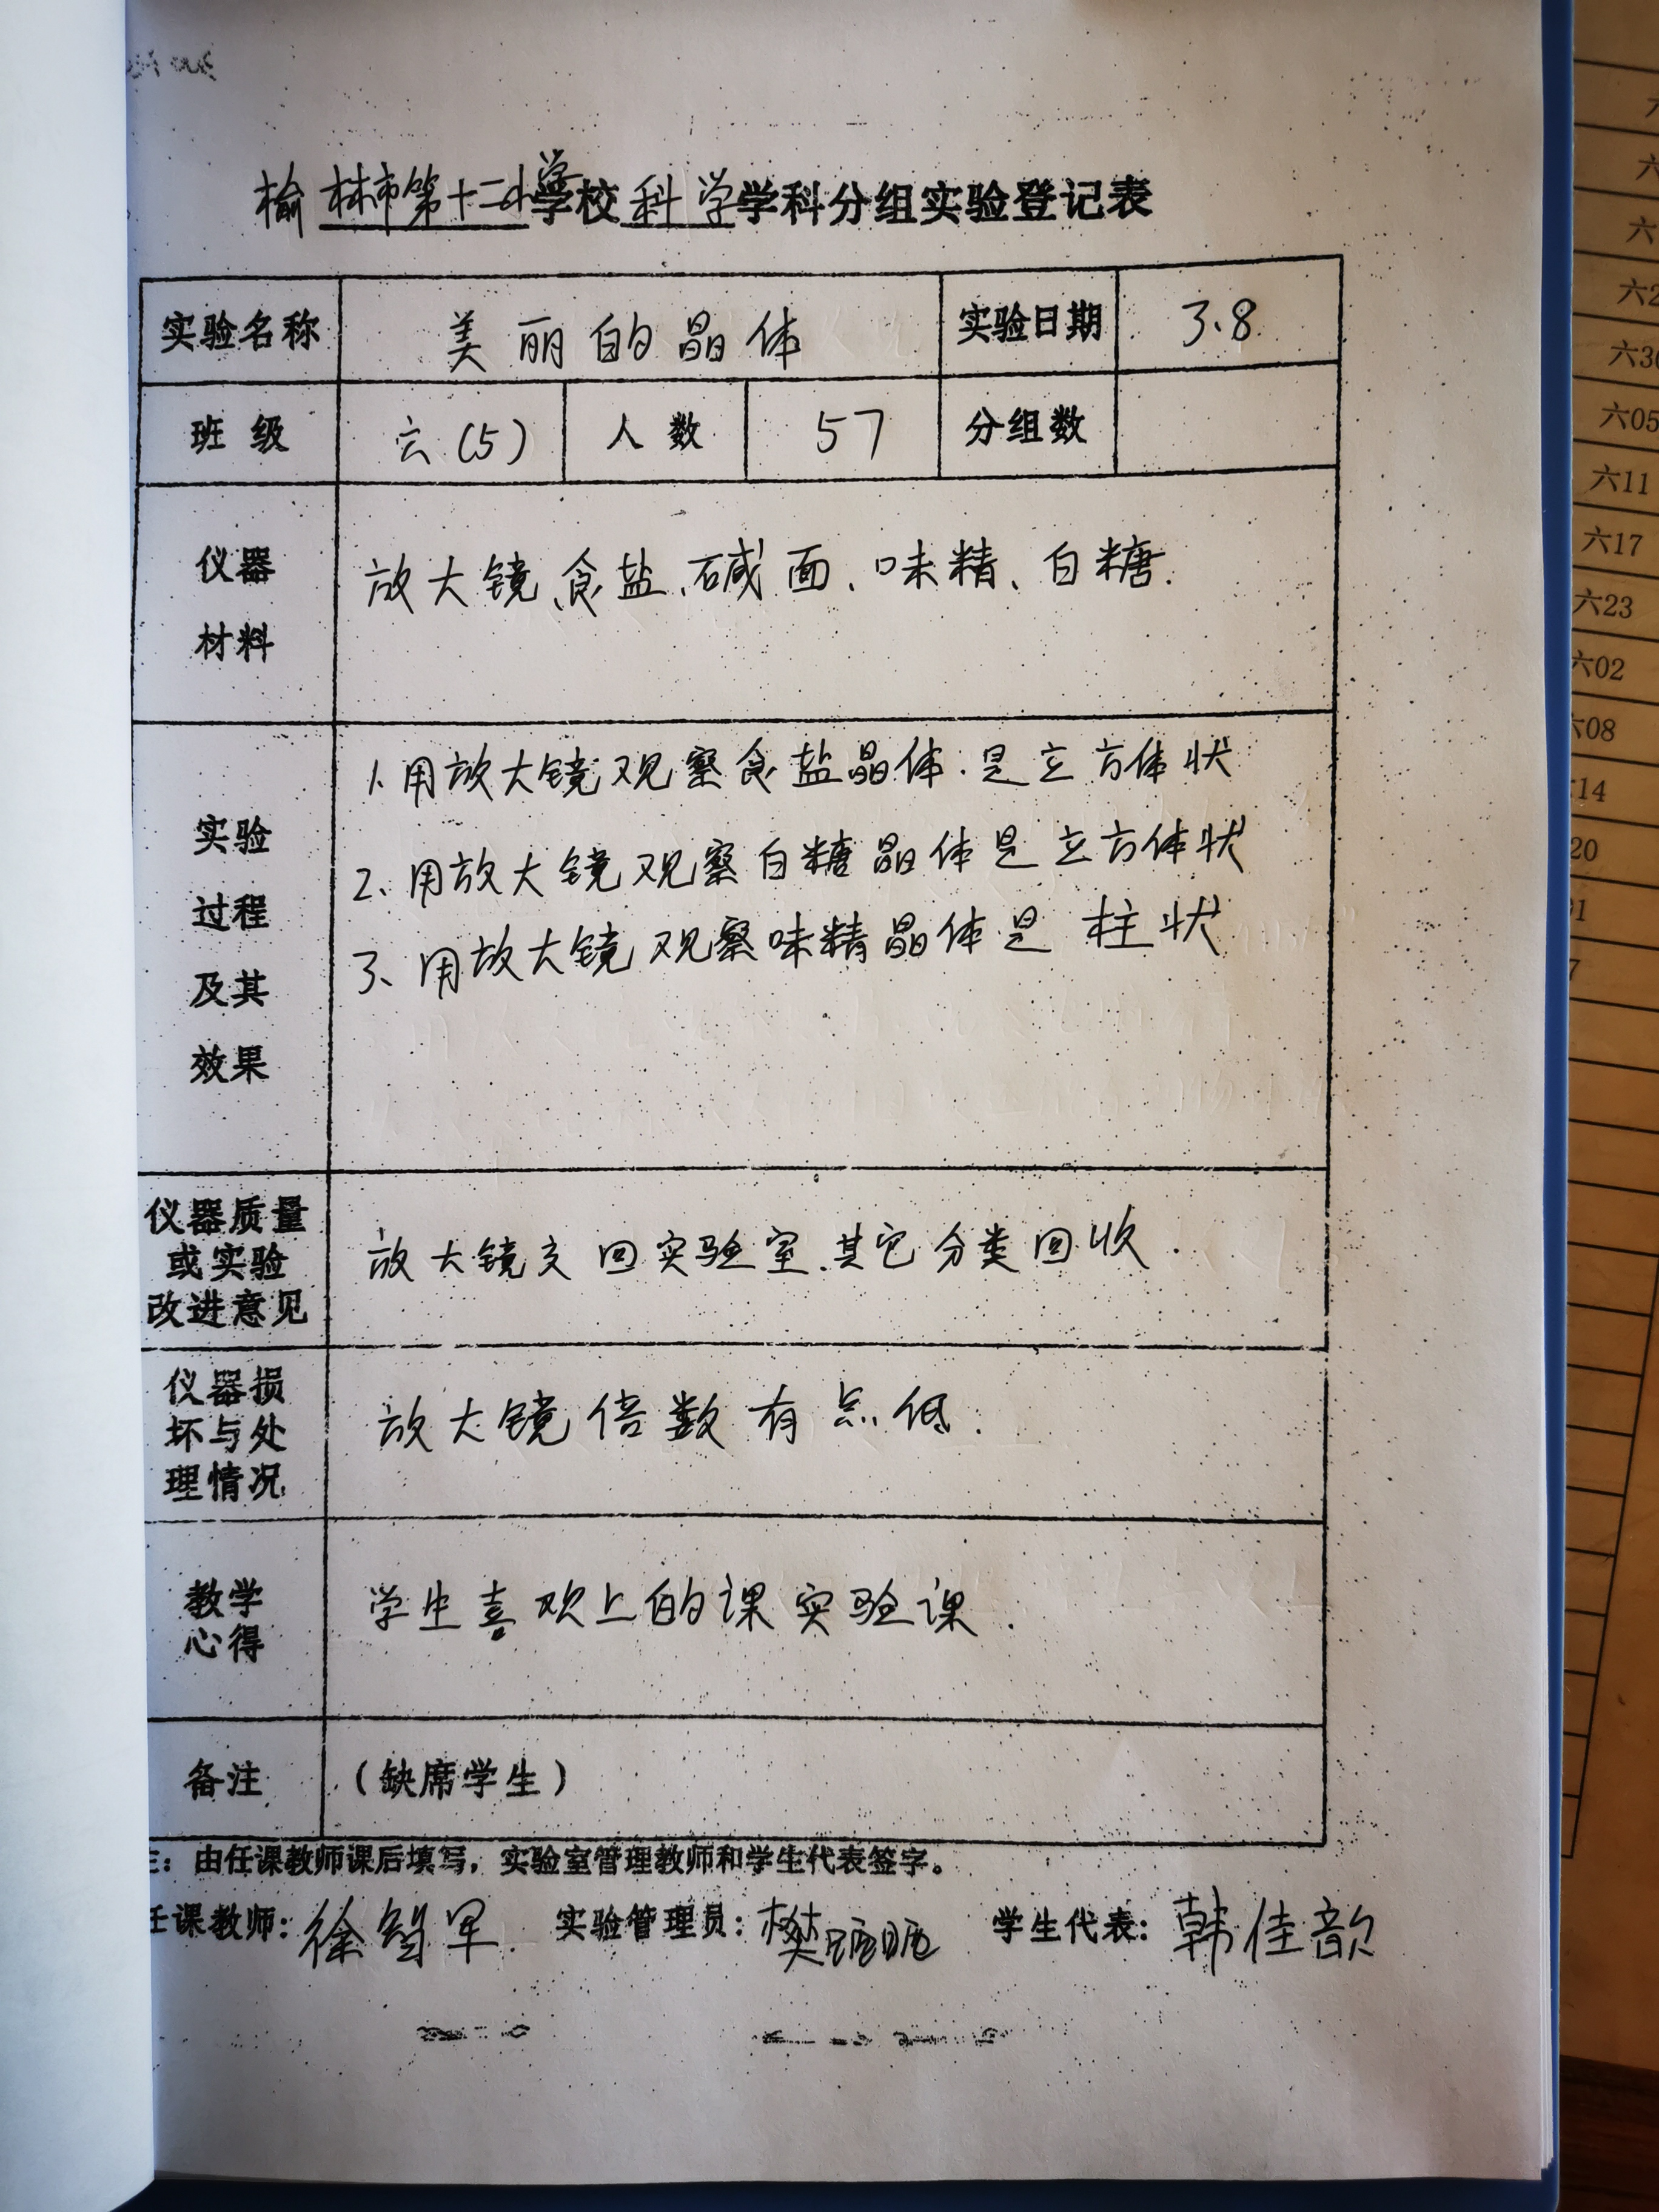 榆林市第十二小学学校科学学科分组实验登记表
实验名称 美丽的晶体 实验日期 3.8
班级 六(5) 人数 57 分组数
仪器
材料
放大镜、食盐、碱面、味精、白糖.
实验
过程
及其
效果
1、用放大镜观察食盐晶体.是立方体状
2、用放大镜观察白糖晶体是立方体状
3、用放大镜观察味精晶体是柱状
仪器质量
或实验
改进意见
放大镜交回实验室.其它分类回收.
仪器损
坏与处
理情况
放大镜倍数有点低.
教学
心得
学生喜欢上的课实验课.
备注 (缺席学生)
注:由任课教师课后填写,实验室管理教师和学生代表签字。
任课教师:徐智军 实验管理员:樊 学生代表:韩佳歆
六2
六30
六05
六11
六17
六23
六02
六08
14
20